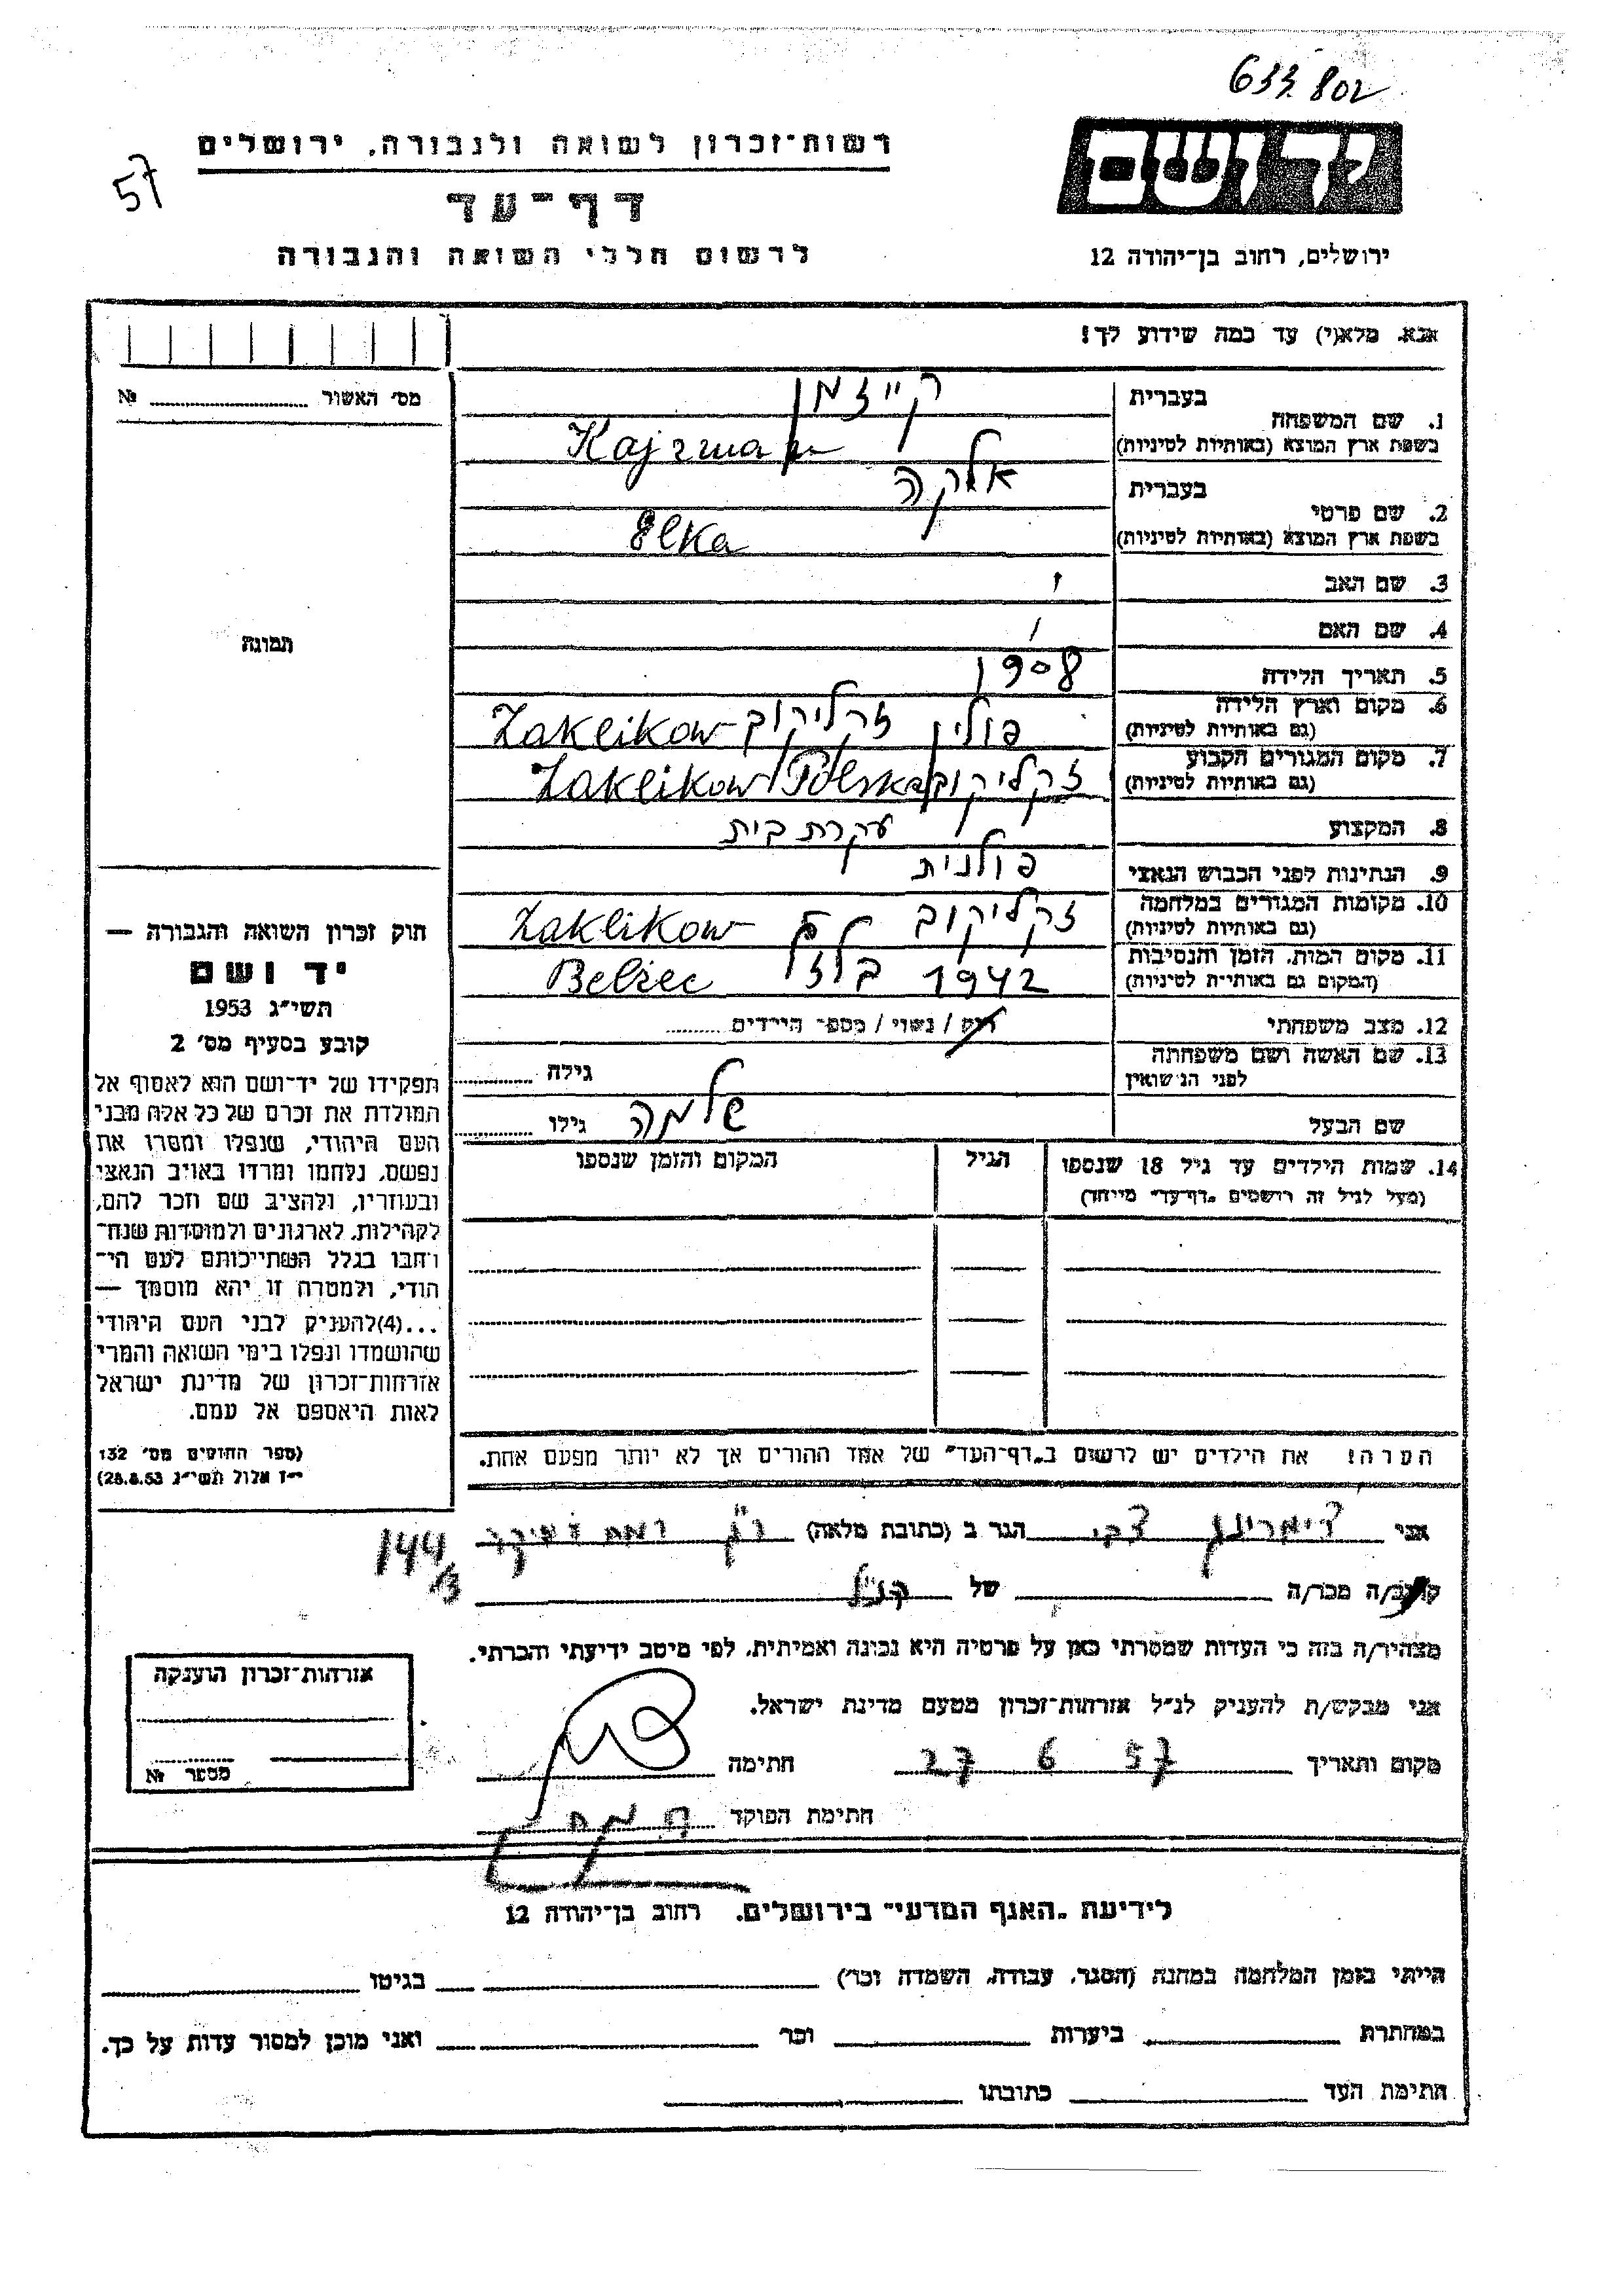 633802
יד ושם
רשות־זכרון לשואה ולגבורה, ירושלים
57
דף־עד
לרשום חללי השואה והגבורה
ירושלים, רחוב בן־יהודה 12
אנא, מלא(י) עד כמה שידוע לך!
מס' האשור № 
תמונה
1. שם המשפחה בעברית קייזמן
בשפת ארץ המוצא (באותיות לטיניות) Kajzman
2. שם פרטי בעברית אלקה
בשפת ארץ המוצא (באותיות לטיניות) Elka
3. שם האב
4. שם האם
5. תאריך הלידה 1908
6. מקום וארץ הלידה (גם באותיות לטיניות) פולין זקליקוב Zaklikow
7. מקום המגורים הקבוע (גם באותיות לטיניות) זקליקוב Zaklikow Polska
8. המקצוע עקרת בית
9. הנתינות לפני הכבוש הנאצי פולנית
10. מקומות המגורים במלחמה (גם באותיות לטיניות) זקליקוב Zaklikow
11. מקום המות, הזמן והנסיבות (המקום גם באותיות לטיניות) 1942 בלזץ Belżec
12. מצב משפחתי רוק / נשוי / מספר הילדים
13. שם האשה ושם משפחתה לפני הנישואין גילה
שם הבעל שלמה גילו
14. שמות הילדים עד גיל 18 שנספו הגיל המקום והזמן שנספו
(מעל לגיל זה רושמים "דף־עד" מיוחד)
הערה! את הילדים יש לרשום ב"דף־העד" של אחד ההורים אך לא יותר מפעם אחת.
חוק זכרון השואה והגבורה —
יד ושם
תשי"ג 1953
קובע בסעיף מס' 2
תפקידו של יד־ושם הוא לאסוף אל
המולדת את זכרם של כל אלה מבני
העם היהודי, שנפלו ומסרו את
נפשם, נלחמו ומרדו באויב הנאצי
ובעוזריו, ולהציב שם וזכר להם,
לקהילות, לארגונים ולמוסדות שנח־
רבו בגלל השתייכותם לעם הי־
הודי, ולמטרה זו יהא מוסמך —
...(4) להעניק לבני העם היהודי
שהושמדו ונפלו בימי השואה והמרי
אזרחות־זכרון של מדינת ישראל
לאות היאספם אל עמם.
(ספר החוקים מס' 132
י"ז אלול תשי"ג 28.8.53)
אני צבי הגר ב (כתובת מלאה) ר"ג
144/3
קרוב/ה מכר/ה של הנ"ל
מצהיר/ה בזה כי העדות שמסרתי כאן על פרטיה היא נכונה ואמיתית, לפי מיטב ידיעתי והכרתי.
אני מבקש/ת להעניק לנ"ל אזרחות־זכרון מטעם מדינת ישראל.
מקום ותאריך 27 6 57 חתימה
חתימת הפוקד
אזרחות־זכרון הוענקה
מספר №
לידיעת "האגף המדעי" בירושלים, רחוב בן־יהודה 12
הייתי בזמן המלחמה במחנה (הסגר, עבודה, השמדה וכר') בגיטו
במחתרת ביערות וכר ואני מוכן למסור עדות על כך.
חתימת העד כתובתו